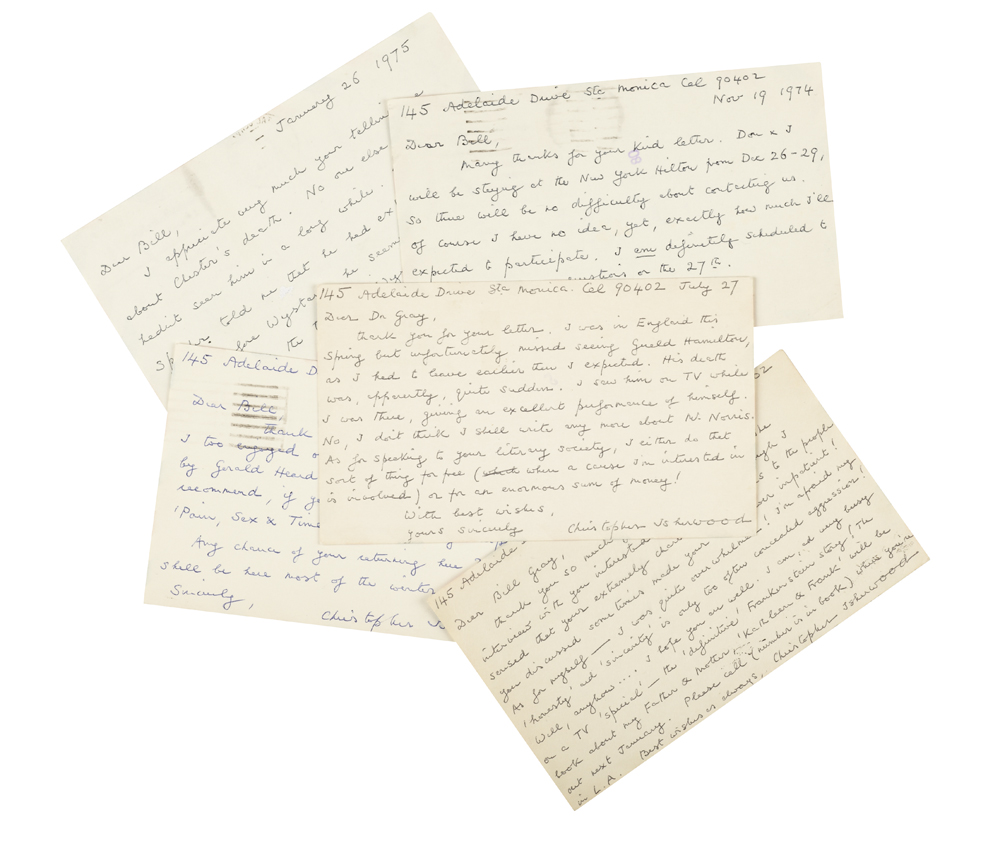 January 26 1975
Dear Bill,
I appreciate very much your tellin
about Chester's death. No one else
hadn't seen him in a long while.
told me that he had ex
fore Wystan he seem
the
145 Adelaide Drive Sta Monica Cal 90402
Nov 19 1974
Dear Bill,
Many thanks for your kind letter. Don & I
will be staying at the New York Hilton from Dec 26-29,
so there will be no difficulty about contacting us.
Of course I have no idea, yet, exactly how much I'll
expected to participate. I am definitely scheduled to
questions on the 27th.
145 Adelaide Drive Sta Monica. Cal 90402 July 27
Dear Dr Gray,
Thank you for your letter. I was in England this
Spring but unfortunately missed seeing Gerald Hamilton,
as I had to leave earlier than I expected. His death
was, apparently, quite sudden. I saw him on TV while
I was there, giving an excellent performance of himself.
No, I don't think I shall write any more about Mr. Norris.
As for speaking to your literary society, I either do that
sort of thing for free (when a cause I'm interested in
is involved) or for an enormous sum of money!
With best wishes,
yours sincerely Christopher Isherwood
145 Adelaide D
Dear Bill,
thank
I too enjoyed
by Gerald Heard
recommend, if yo
'Pain, Sex & Time
Any chance of your returning here
shall be here most of the winter
Sincerely,
Christopher Is
145 Adelaide
Dear Bill Gray,
thank you so much
interview with you interested
sensed that your extremely char
you discussed sometimes made your over impatient!
As for myself — I was quite overwhelme ! I'm afraid my
'honesty' and 'sincerity' is only too often concealed aggression!
Well, anyhow.... I hope you are well. I am, and very busy
on a TV 'special' — the 'definitive' Frankenstein story! The
book about my Father & Mother, 'Kathleen & Frank' will be
out next January. Please call (number is in book) when you're
in L.A. Best wishes as always, Christopher Isherwood